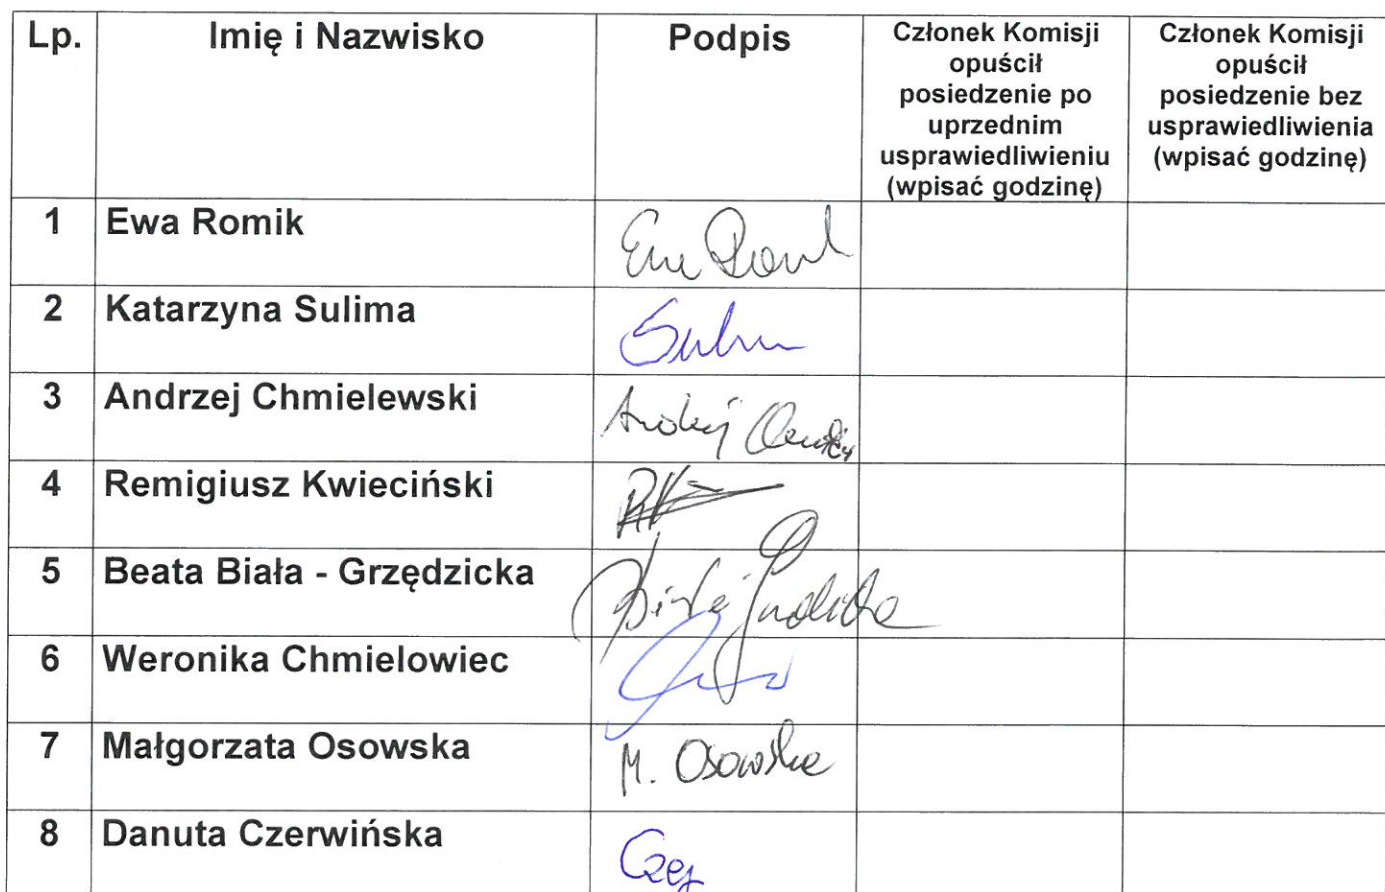 Lp. Imię i Nazwisko Podpis Członek Komisji opuścił posiedzenie po uprzednim usprawiedliwieniu (wpisać godzinę) Członek Komisji opuścił posiedzenie bez usprawiedliwienia (wpisać godzinę)
1 Ewa Romik
2 Katarzyna Sulima
3 Andrzej Chmielewski
4 Remigiusz Kwieciński
5 Beata Biała - Grzędzicka
6 Weronika Chmielowiec
7 Małgorzata Osowska M. Osowska
8 Danuta Czerwińska